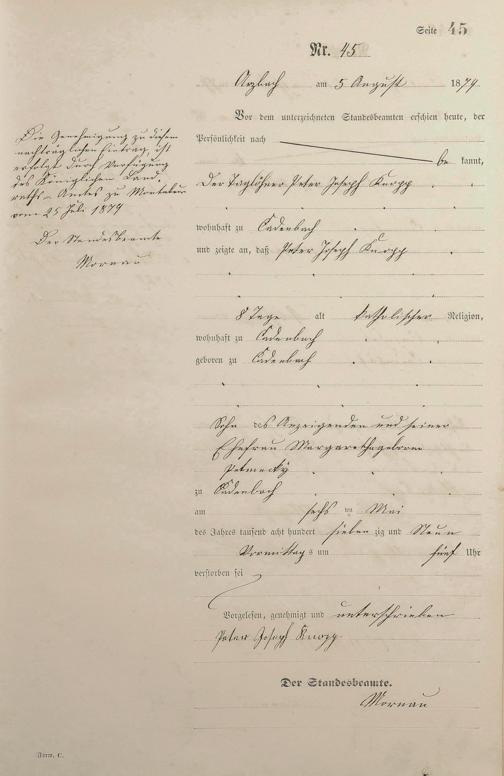 Seite 45
Nr. 45
Arzbach am 5 August 1879
Vor dem unterzeichneten Standesbeamten erschien heute, der
Persönlichkeit nach
be kannt,
Der Taglöhner Peter Joseph Knopp
wohnhaft zu Cadenbach
und zeigte an, daß Peter Joseph Knopp
8 Tage alt katholischer Religion,
wohnhaft zu Cadenbach
geboren zu Cadenbach
Sohn des Anzeigenden und seiner
Ehefrau Margaretha geboren
zu Cadenbach
am sechs ten Mai
des Jahres tausend acht hundert sieben zig und Neun
Vormittags um fünf Uhr
verstorben sei
Vorgelesen, genehmigt und unterschrieben
Peter Joseph Knopp
Der Standesbeamte.
Mornau
Die Genehmigung zu diesem
nachträglichen Eintrag, ist
erfolgt durch Verfügung
des Königlichen Land-
raths-Amtes zu Montabaur
vom 25 Juli 1879
Der Standesbeamte
Mornau
Form. C.